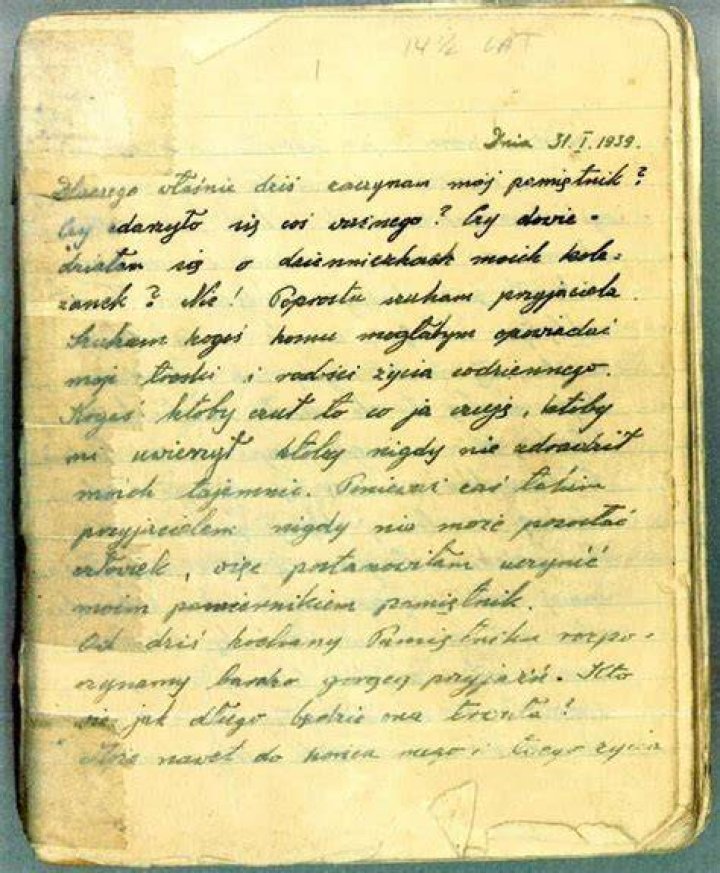 14 ½ LAT
Dnia 31.I.1939.
Dlaczego właśnie dziś zaczynam mój pamiętnik?
Czy zdarzyło się coś ważnego? Czy dowie-
działam się o dzienniczkach moich kole-
żanek? Nie! Poprostu szukam przyjaciela.
Szukam kogoś komu mogłabym opowiadać
moje troski i radości życia codziennego.
Kogoś ktoby czuł to co ja czuję, ktoby
mi uwierzył ktoby nigdy nie zdradził
moich tajemnic. Ponieważ takim
przyjacielem nigdy nie może pozostać
człowiek, więc postanowiłam uczynić
moim powiernikiem pamiętnik.
Od dziś kochany Pamiętniku rozpo-
czynamy bardzo gorącą przyjaźń. Kto
wie jak długo będzie ona trwała?
Może nawet do końca mego i twego życia